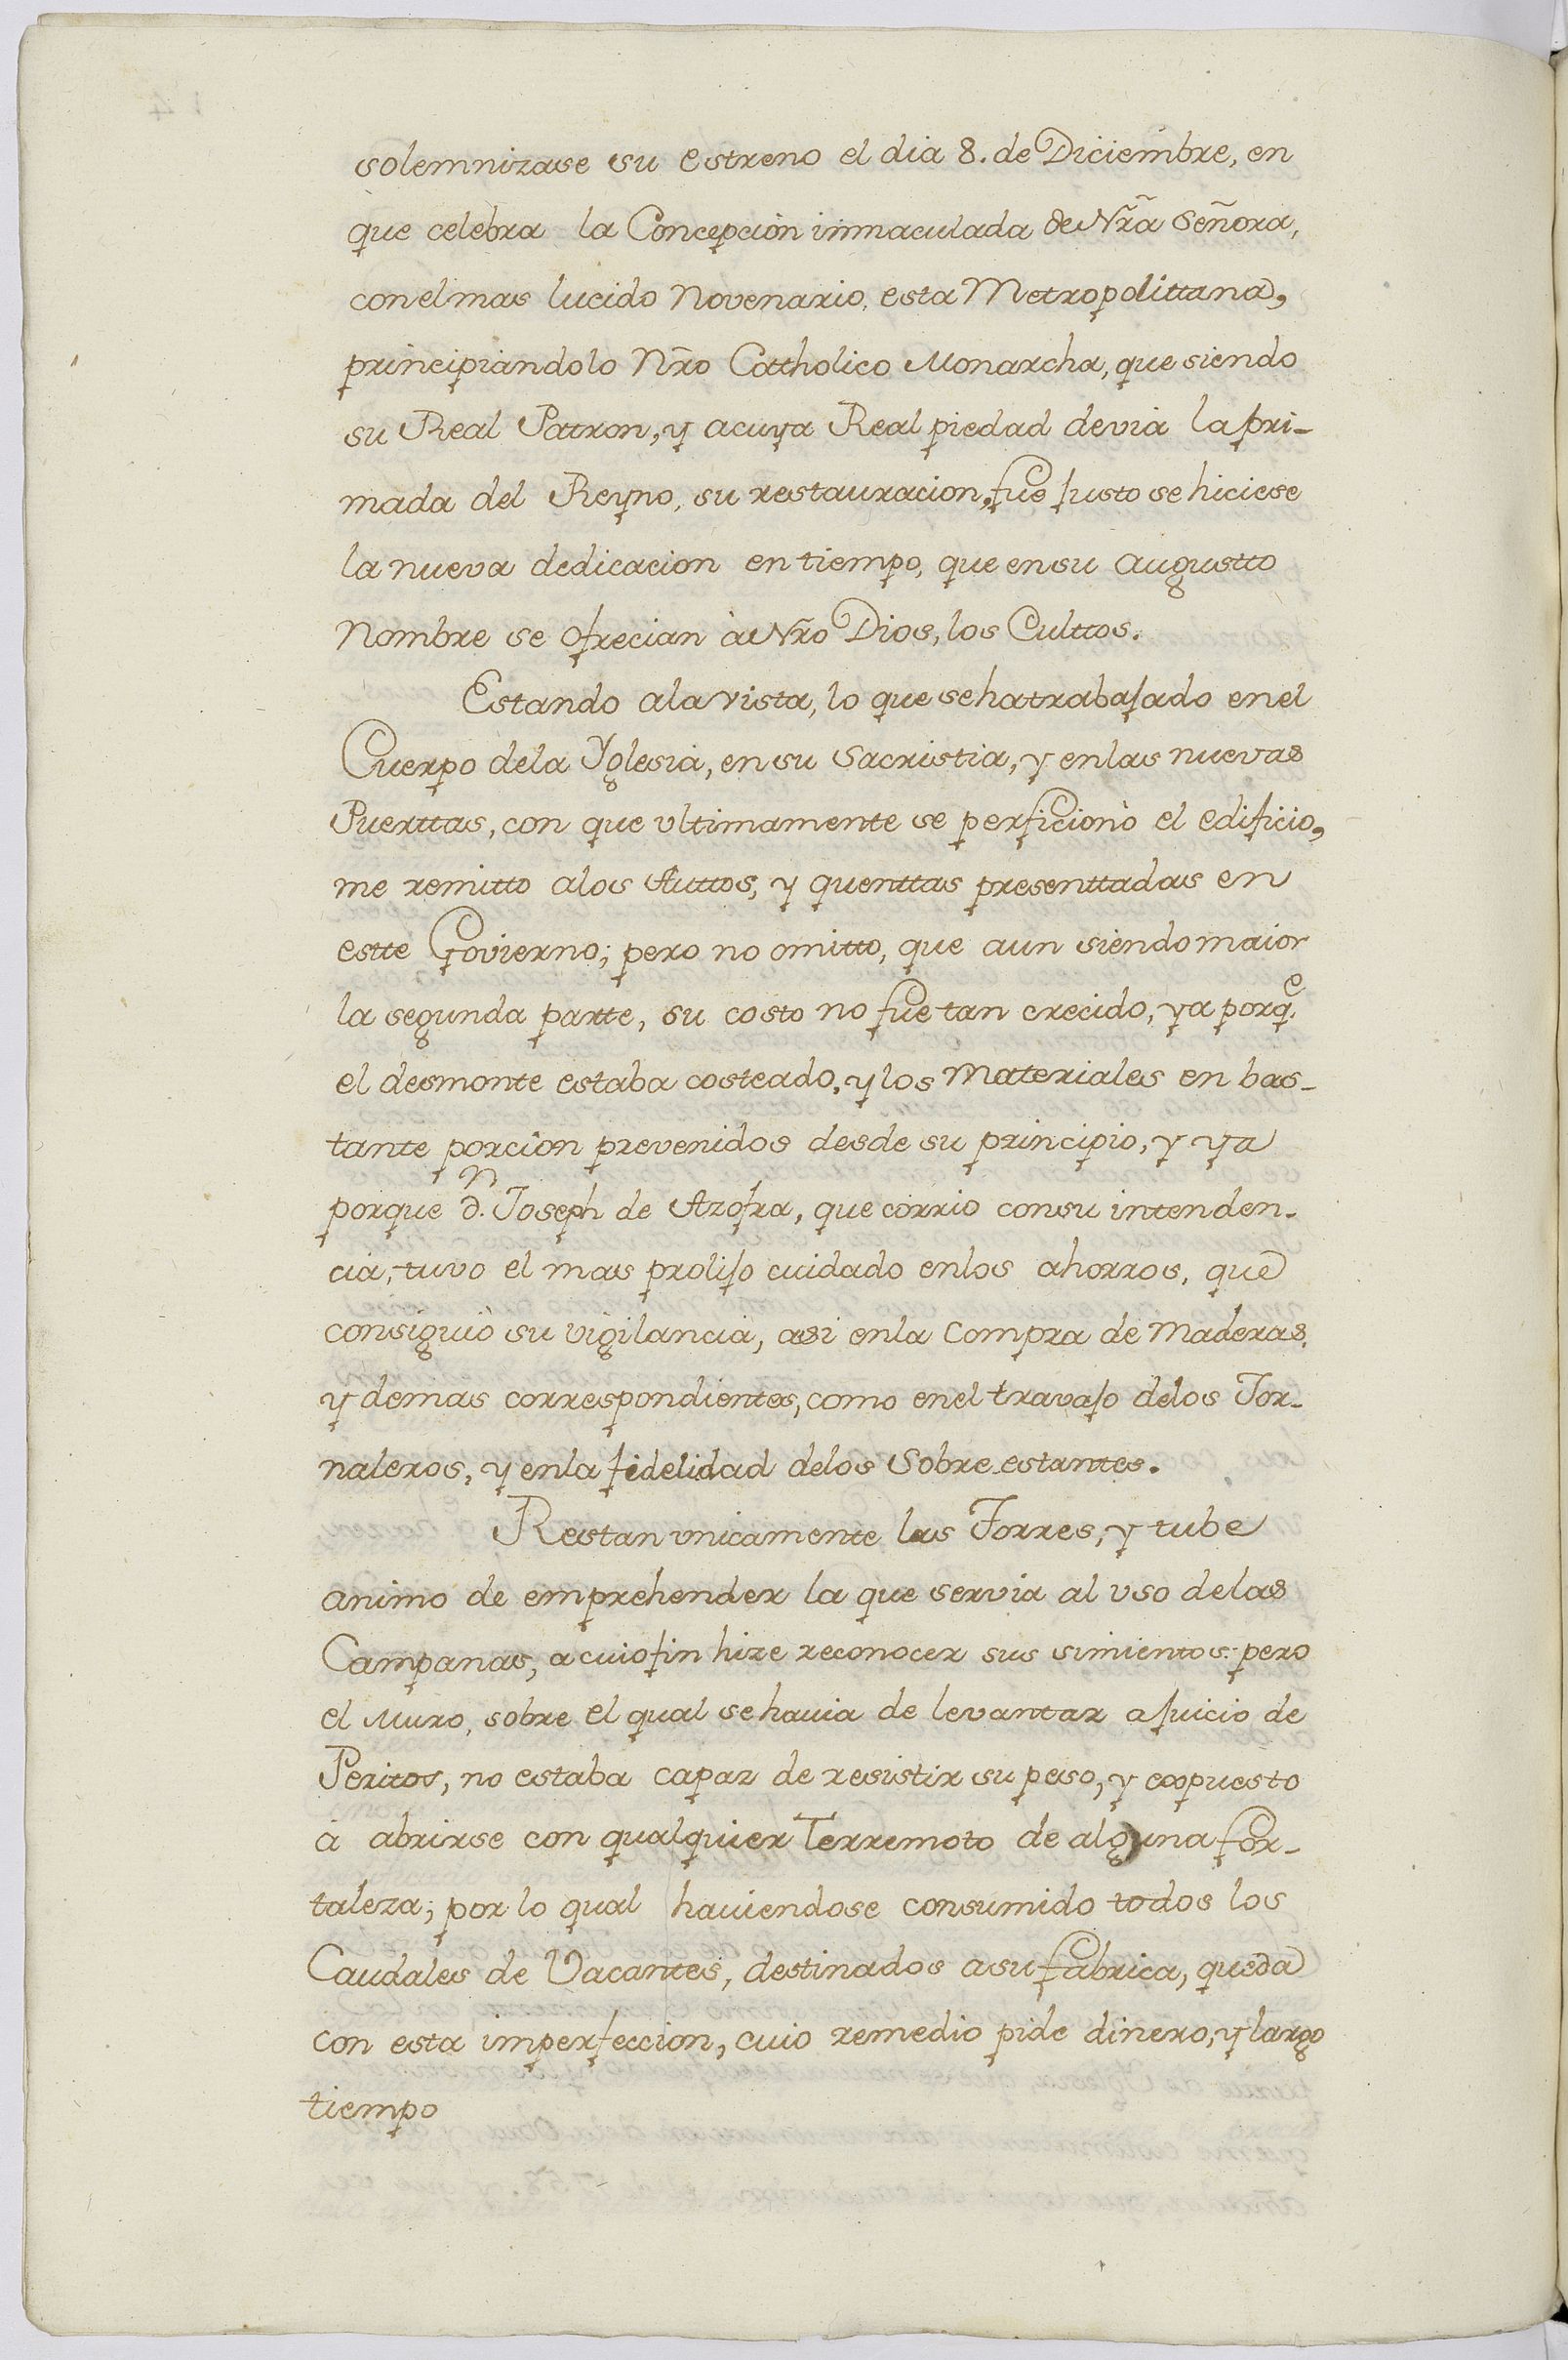 solemnizase su estreno el dia 8. de Diciembre, en
que celebra la Concepción inmaculada de Nr̃a Señora,
con el mas lucido Novenario, esta Metropolittana,
principiandolo Nr̃o Catholico Monarcha, que siendo
su Real Patron, y acuya Real piedad devia la pri-
mada del Reyno, su restauracion, fue justo se hiciese
la nueva dedicacion en tiempo, que en su augustto
Nombre se ofrecian à Nr̃o Dios, los Culttos.
Estando ala vista, lo que se ha trabajado en el
Cuerpo dela Yglesia, en su Sacristia, y enlas nuevas
Puerttas, con que vltimamente se perficionò el edificio,
me remitto alos Auttos, y quenttas presenttadas en
estte Govierno; pero no omitto, que aun siendo maior
la segunda partte, su costo no fue tan crecido, ya porq.e
el desmonte estaba costeado, y los Materiales en bas-
tante porcion prevenidos desde su principio, y ya
porque d.n Joseph de Azofra, que corrio consu intenden-
cia, tuvo el mas prolijo cuidado enlos ahorros, que
consiguiò su vigilancia, asi enla Compra de Maderas,
y demas correspondientes, como enel travajo delos Jor-
naleros, y enla fidelidad delos Sobre estantes.
Restan vnicamente las Torres, y tube
animo de emprehender la que servia al vso delas
Campanas, a cuio fin hize reconocer sus simientos: pero
el Muro, sobre el qual se hauia de levantar a juicio de
Peritos, no estaba capaz de resistir su peso, y expuesto
à abrirse con qualquier Terremoto de alguna for-
taleza; por lo qual hauiendose consumido todos los
Caudales de Vacantes, destinados a su fabrica, queda
con esta imperfeccion, cuio remedio pide dinero, y largo
tiempo